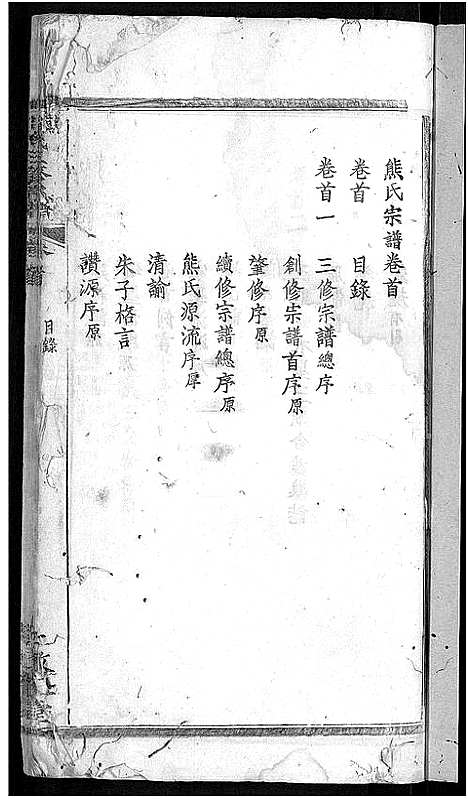 熊氏宗譜卷首
卷首 目錄
卷首一 三修宗譜總序
創修宗譜首序原
肇修序原
續修宗譜總序原
熊氏源流序原
清諭
朱子格言
讚源序原
目錄